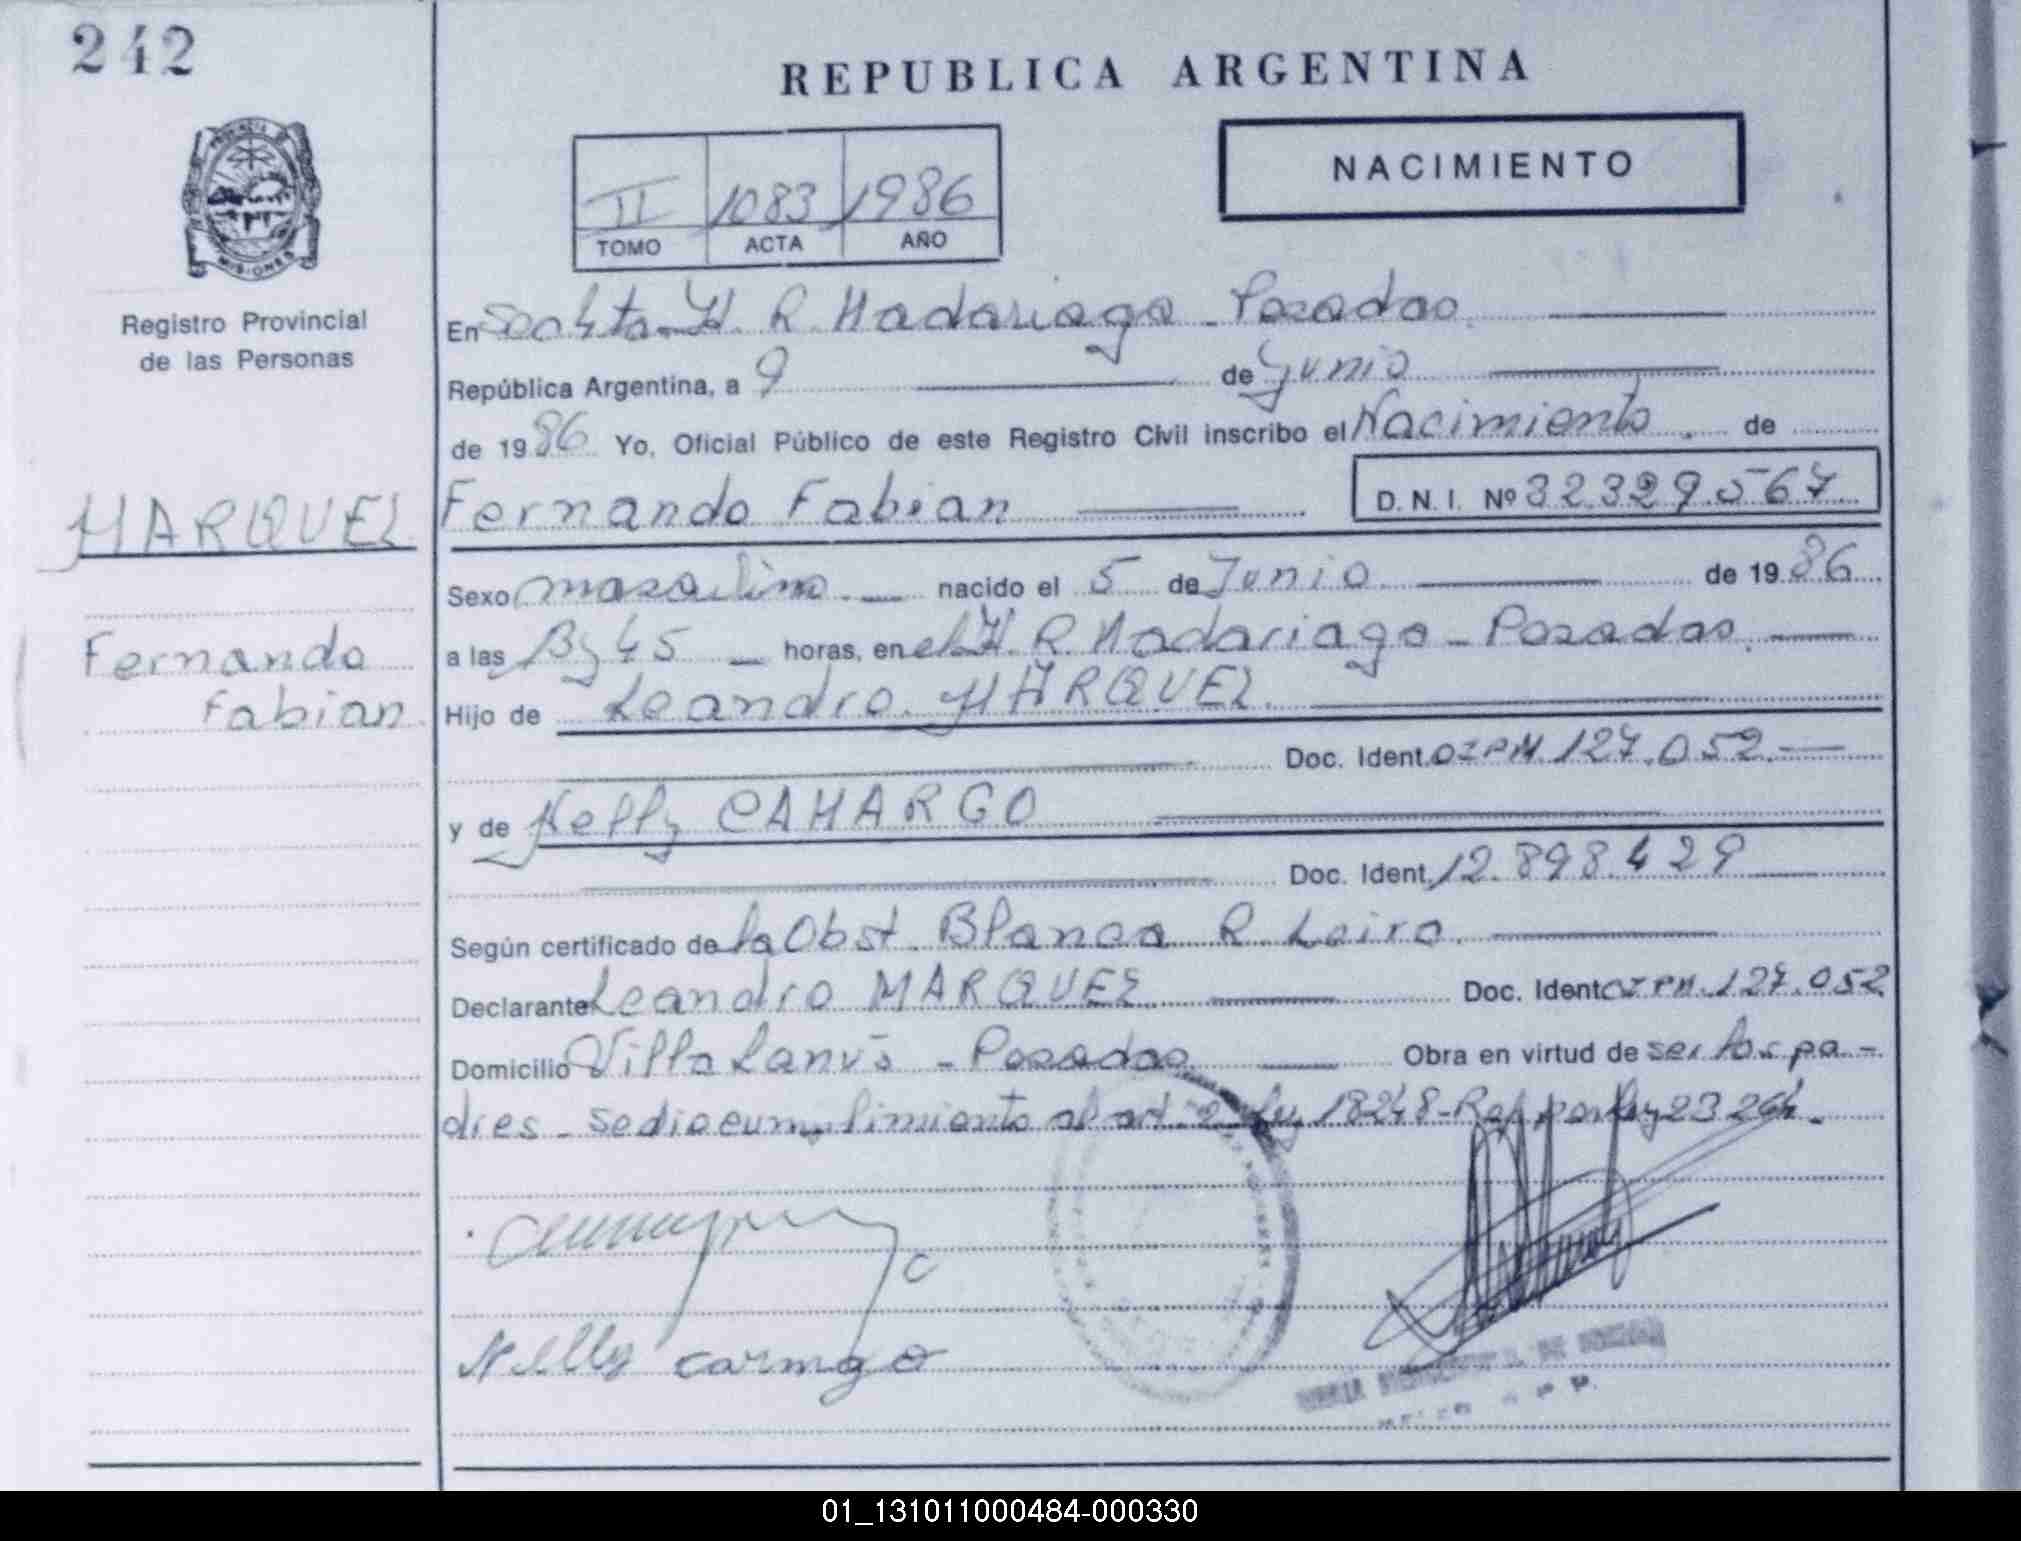 242
REPUBLICA ARGENTINA
NACIMIENTO
II 1083 1986
TOMO ACTA AÑO
PROVINCIA DE
MISIONES
Registro Provincial
de las Personas
En H. R. Madariaga - Posadas.
República Argentina, a 9 de Junio
de 1986 Yo, Oficial Público de este Registro Civil inscribo el Nacimiento. de
MARQUEZ
Fernando Fabian D.N.I. Nº 32.329.567
Sexo masculino nacido el 5 de Junio de 1986
Fernando
Fabian
a las 13,45 horas, en el H. R. Madariaga - Posadas.
Hijo de Leandro MARQUEZ.
Doc. Ident. CIPM. 127.052.
y de Nelly CAMARGO
Doc. Ident. 12.898.429
Según certificado de la Obst. Blanca R. Leiro.
Declarante Leandro MARQUEZ Doc. Ident. CIPM. 127.052
Domicilio Villa Lanús - Posadas Obra en virtud de ser los pa-
dres - se dio cumplimiento al art. 2 Ley 18248 - Ref. por Ley 23264 -
Nelly carmgo
01_131011000484-000330